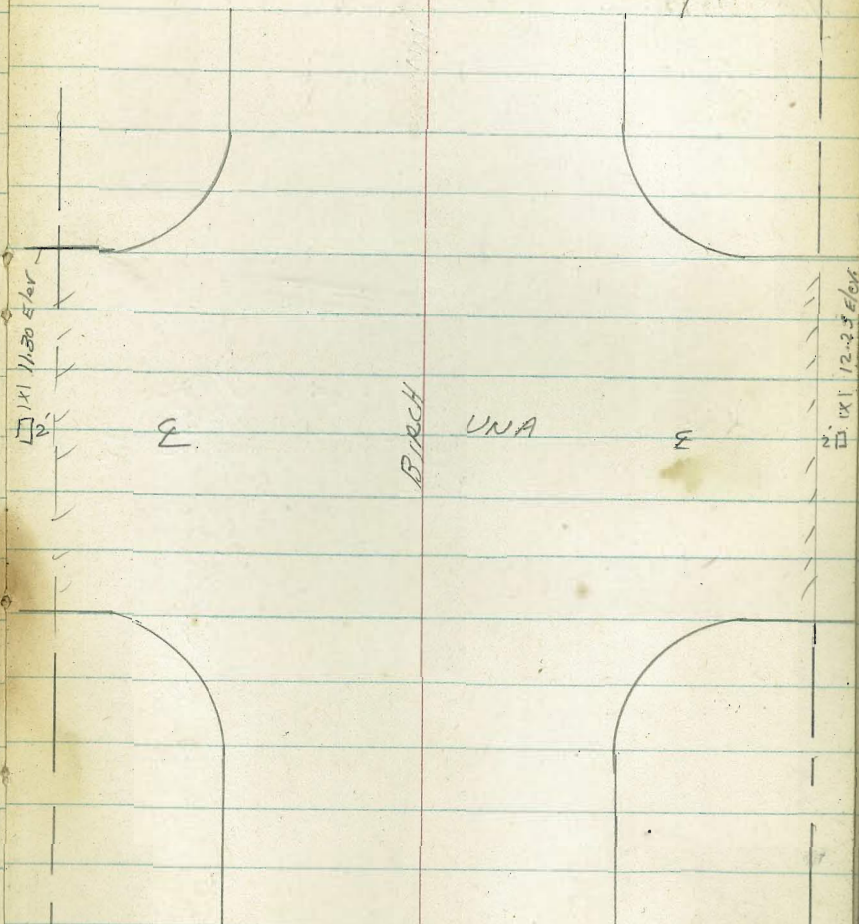 1X1 11.30 Elev
2'
℄
BIRCH
UNA
℄
2'
1X1 12.23 Elev